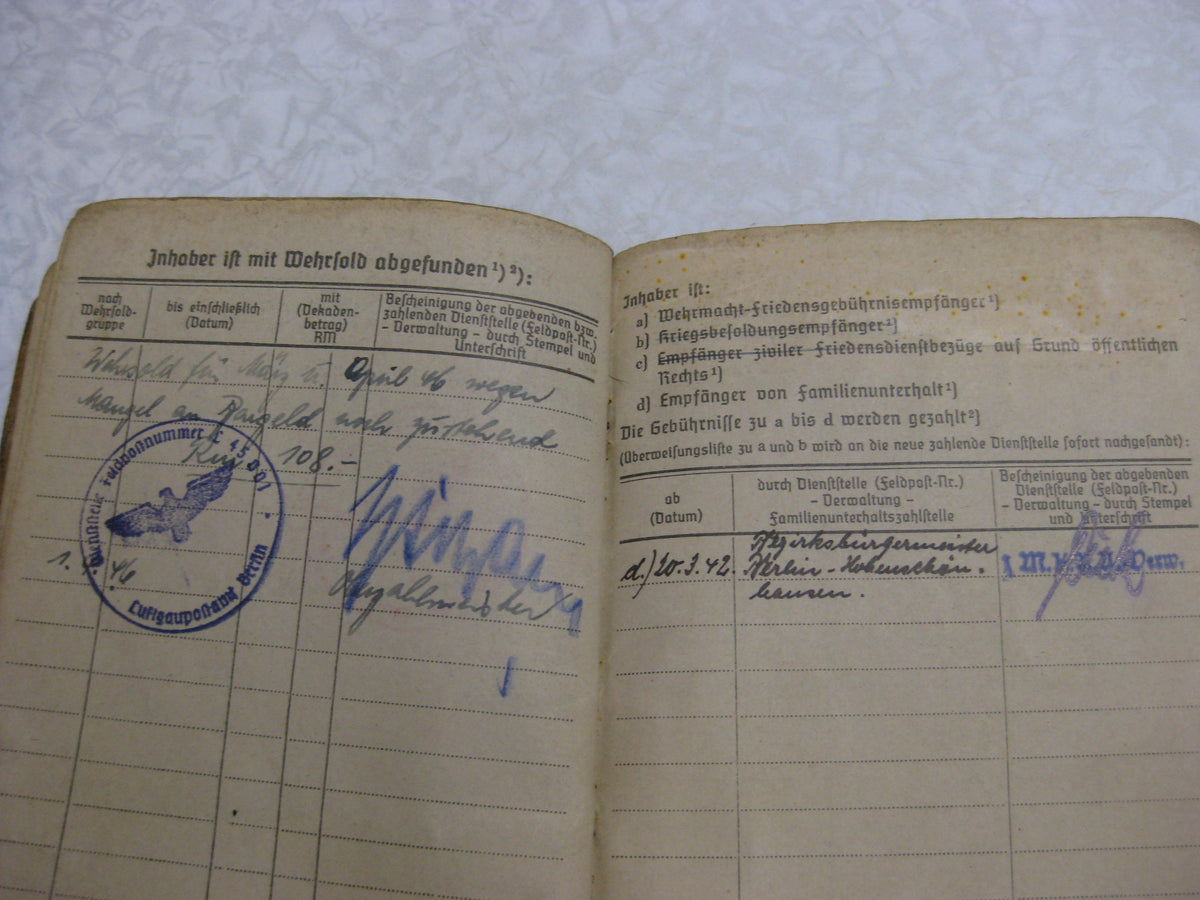 Inhaber ist mit Wehrsold abgefunden ¹) ²):
nach Wehrsold-
gruppe
bis einschließlich
(Datum)
mit
(Dekaden-
betrag)
RM
Bescheinigung der abgebenden bzw.
zahlenden Dienststelle (Feldpost-Nr.)
- Verwaltung - durch Stempel und
Unterschrift
Wehrsold für März u. April 46 wegen
Mangel an Bargeld noch zustehend
RM 108.-
Dienststelle Feldpostnummer L 45001
Luftgaupostamt Berlin
1. 46
Inhaber ist:
a) Wehrmacht-Friedensgebührnisempfänger ¹)
b) Kriegsbesoldungsempfänger ¹)
c) Empfänger ziviler Friedensdienstbezüge auf Grund öffentlichen
Rechts ¹)
d) Empfänger von Familienunterhalt ¹)
Die Gebührnisse zu a bis d werden gezahlt ²)
(Überweisungsliste zu a und b wird an die neue zahlende Dienststelle sofort nachgesandt):
ab
(Datum)
durch Dienststelle (Feldpost-Nr.)
- Verwaltung -
Familienunterhaltszahlstelle
Bescheinigung der abgebenden
Dienststelle (Feldpost-Nr.)
- Verwaltung - durch Stempel
und Unterschrift
d.) 20.3.42. Bezirksbürgermeister
Berlin-Hohenschön-
hausen.